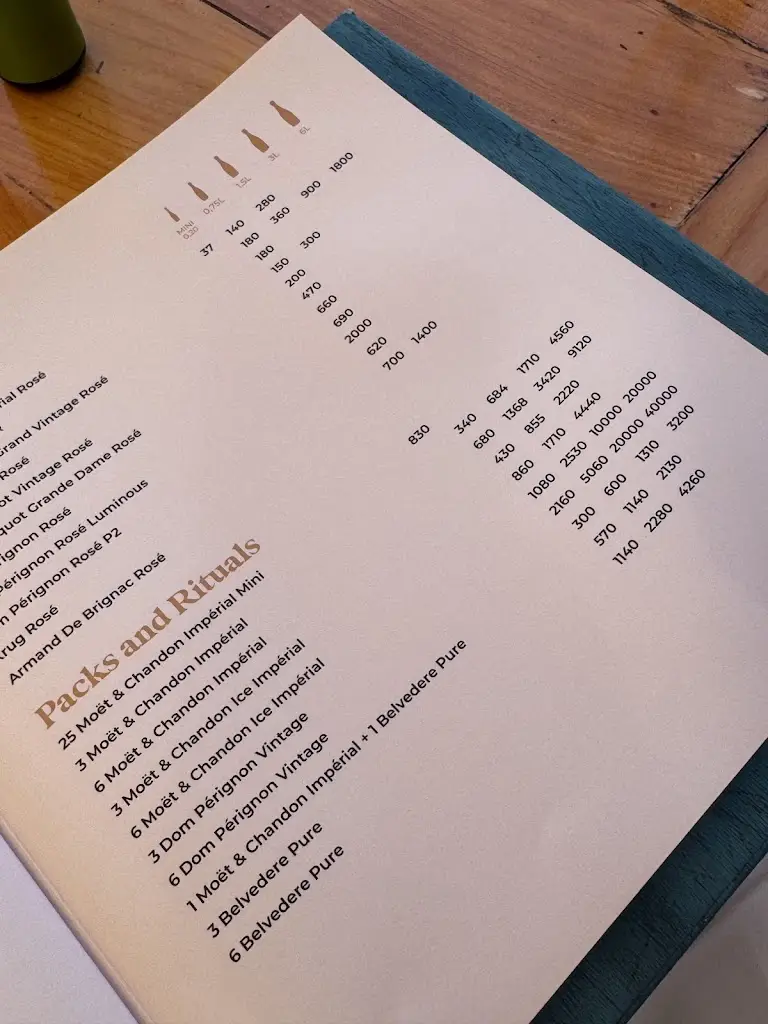 MINI 0.20 0,75L 1,5L 3L 6L
rial Rosé 37 140 280
180 360 900 1800
Grand Vintage Rosé 180
Rosé 150 300
ot Vintage Rosé 200
quot Grande Dame Rosé 470
rignon Rosé 660
Pérignon Rosé Luminous 690
n Pérignon Rosé P2 2000
Krug Rosé 620
Armand De Brignac Rosé 700 1400
Packs and Rituals
25 Moët & Chandon Impérial Mini 830
3 Moët & Chandon Impérial 340 684 1710 4560
6 Moët & Chandon Impérial 680 1368 3420 9120
3 Moët & Chandon Ice Impérial 430 855 2220
6 Moët & Chandon Ice Impérial 860 1710 4440
3 Dom Pérignon Vintage 1080 2530 10000 20000
6 Dom Pérignon Vintage 2160 5060 20000 40000
1 Moët & Chandon Impérial + 1 Belvedere Pure 300 600 1310 3200
3 Belvedere Pure 570 1140 2130
6 Belvedere Pure 1140 2280 4260